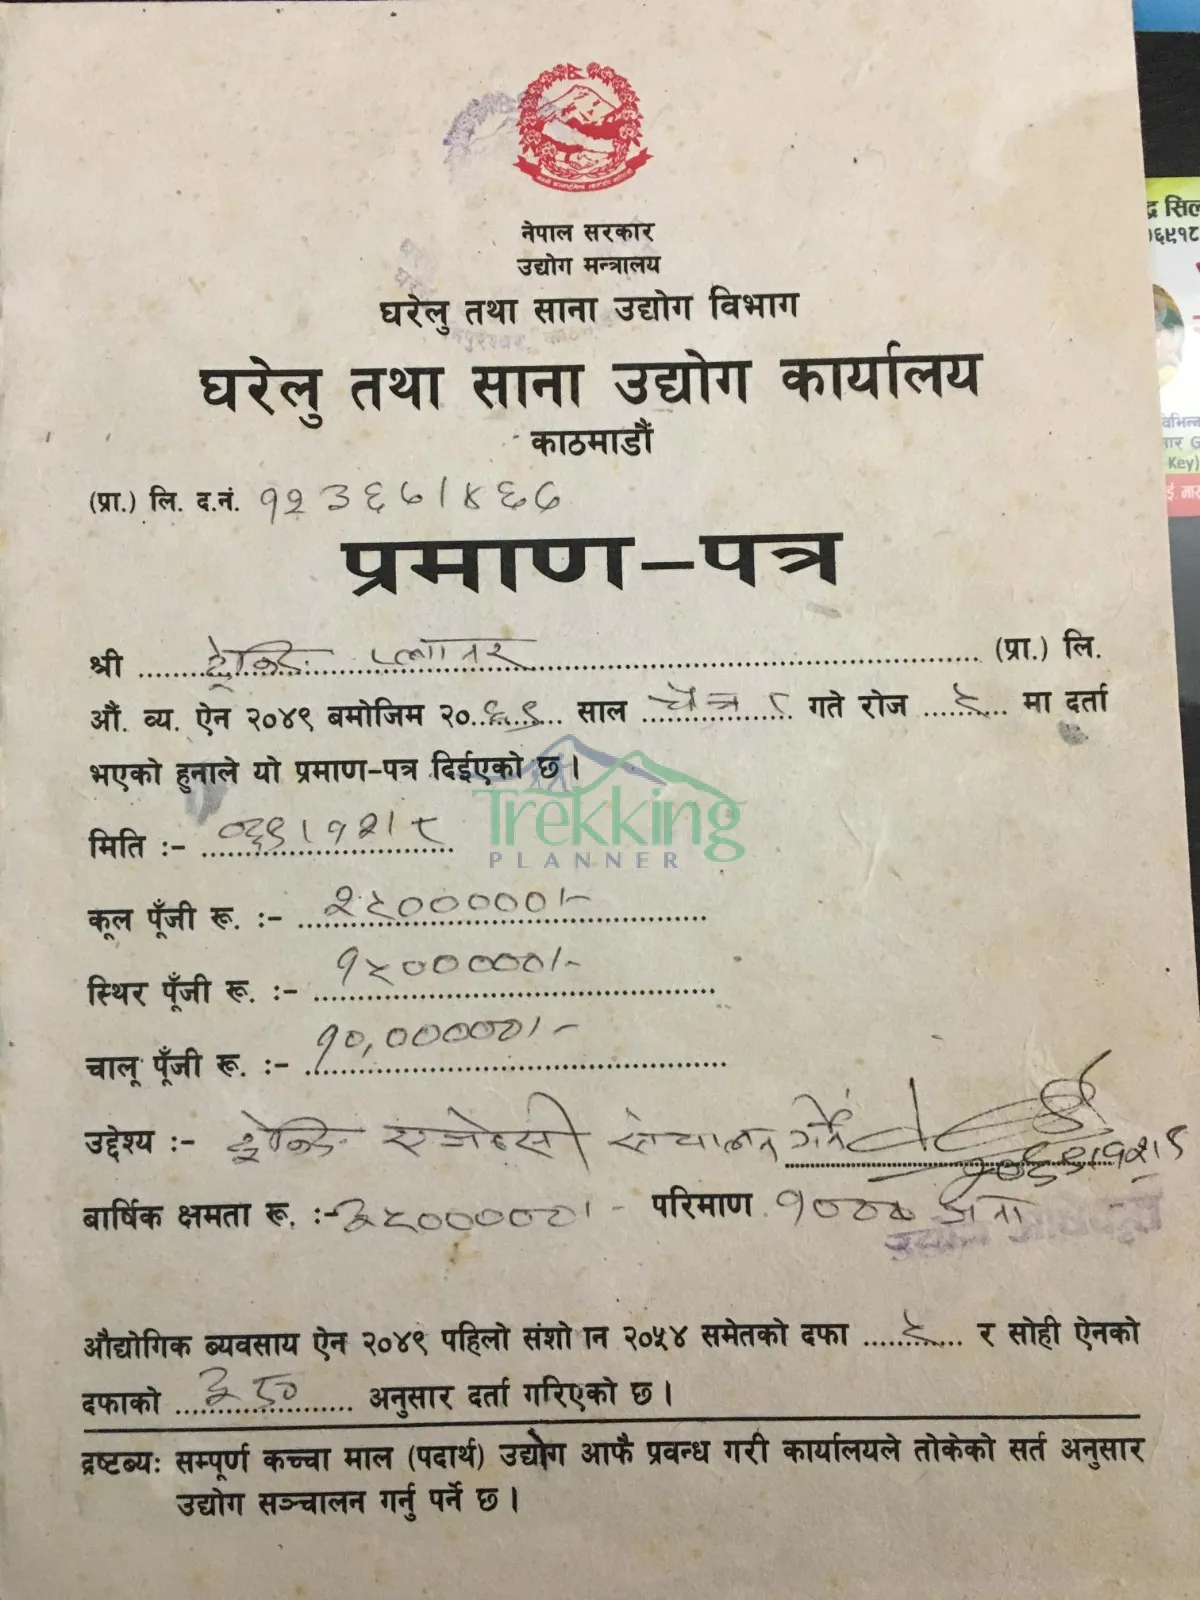 नेपाल सरकार
उद्योग मन्त्रालय
घरेलु तथा साना उद्योग विभाग
घरेलु तथा साना उद्योग कार्यालय
काठमाडौं
(प्रा.) लि. द.नं. १२३६७/४६७
प्रमाण-पत्र
श्री ट्रेकिङ प्लानर (प्रा.) लि.
औं. व्य. ऐन २०४९ बमोजिम २०६९ साल चैत्र ८ गते रोज ५ मा दर्ता
भएको हुनाले यो प्रमाण-पत्र दिईएको छ।
Trekking
PLANNER
मिति :- ०६९।१२।८
कूल पूँजी रू. :- २५०००००।-
स्थिर पूँजी रू. :- १५०००००।-
चालू पूँजी रू. :- १०,०००००।-
उद्देश्य :- ट्रेकिङ एजेन्सी संचालन गर्ने
२०६९।१२।९
बार्षिक क्षमता रू. :- ३५०००००।- परिमाण १००० जना
औद्योगिक ब्यवसाय ऐन २०४९ पहिलो संशो ान २०५४ समेतको दफा ५ र सोही ऐनको
दफाको अनुसार दर्ता गरिएको छ।
द्रष्टब्यः सम्पूर्ण कच्चा माल (पदार्थ) उद्योग आफै प्रवन्ध गरी कार्यालयले तोकेको सर्त अनुसार
उद्योग सञ्चालन गर्नु पर्ने छ।
द्र सिल
०६९१८
विभिन्न
Key)